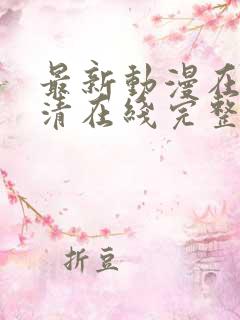 最新動漫在
清在綫完整
折豆